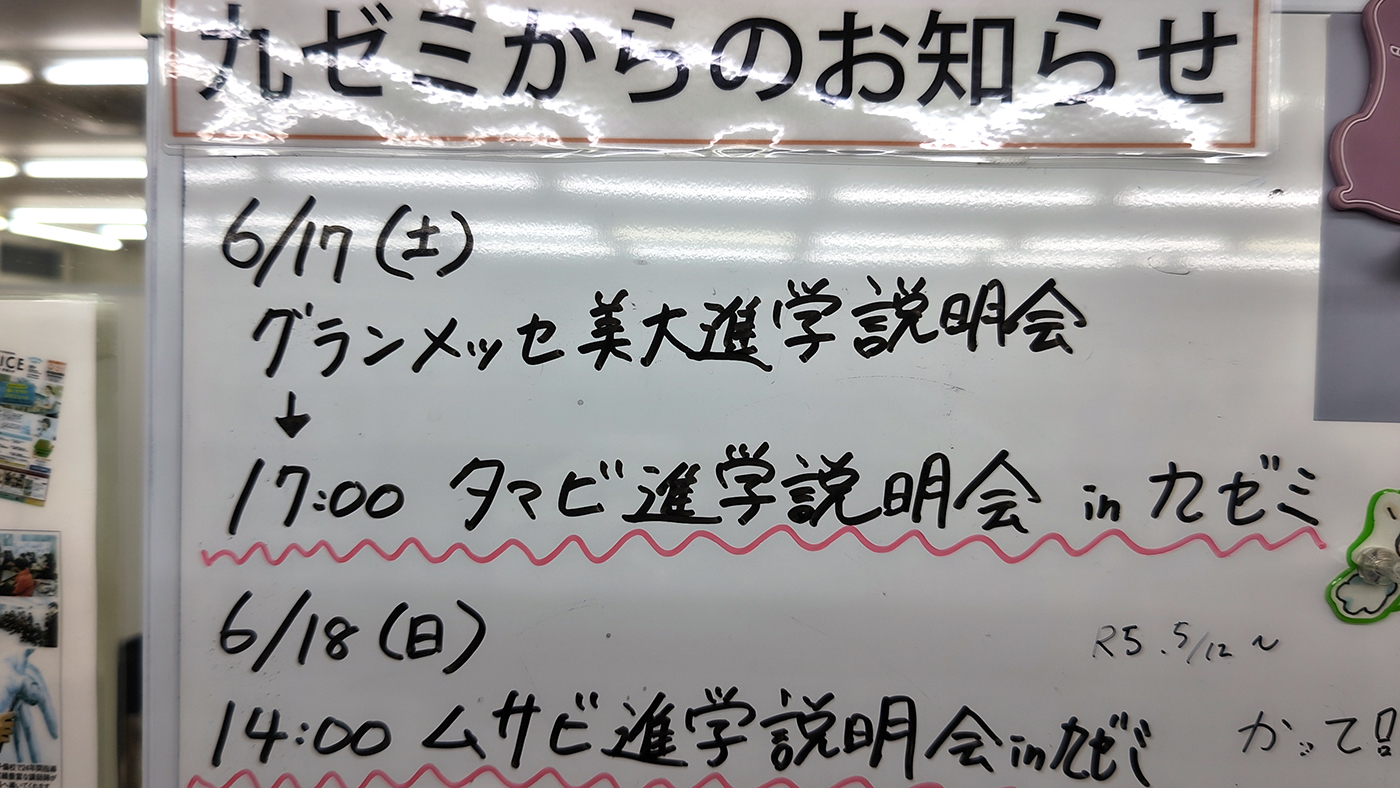 九ゼミからのお知らせ
6/17(土)
グランメッセ美大進学説明会
↓
17:00 タマビ進学説明会 in 九ゼミ
6/18(日)
R5.5/12~
14:00 ムサビ進学説明会 in 九ゼミ
かって
ICE